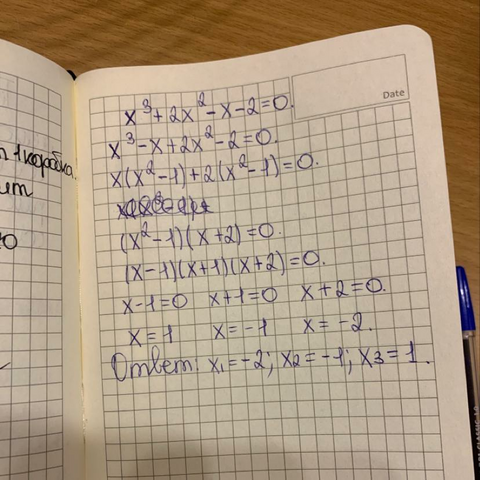 Date
x³+2x²-x-2=0.
x³-x+2x²-2=0.
x(x²-1)+2(x²-1)=0.
(x²-1)(x+2)=0.
(x-1)(x+1)(x+2)=0.
x-1=0 x+1=0 x+2=0.
x=1 x=-1 x=-2.
Ответ: x₁=-2; x₂=-1; x₃=1.